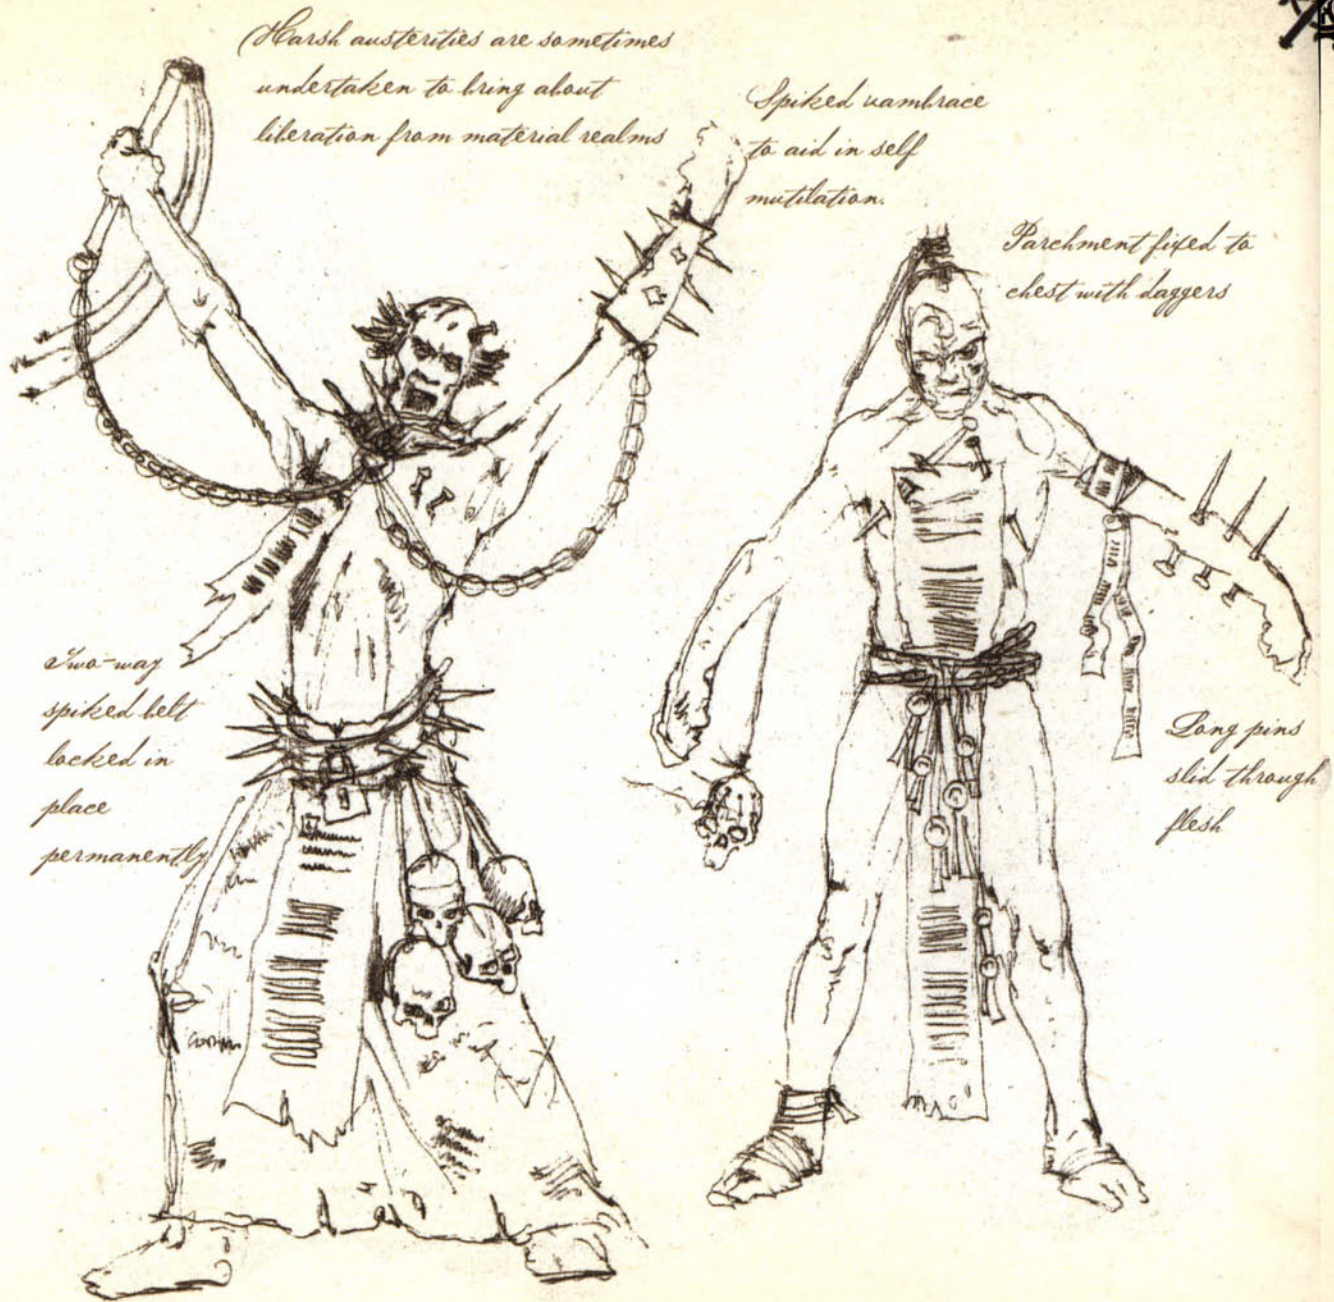 Harsh austerities are sometimes
undertaken to bring about
liberation from material realms
Spiked vambrace
to aid in self
mutilation.
Parchment fixed to
chest with daggers
Two-way
spiked belt
locked in
place
permanently
Long pins
slid through
flesh